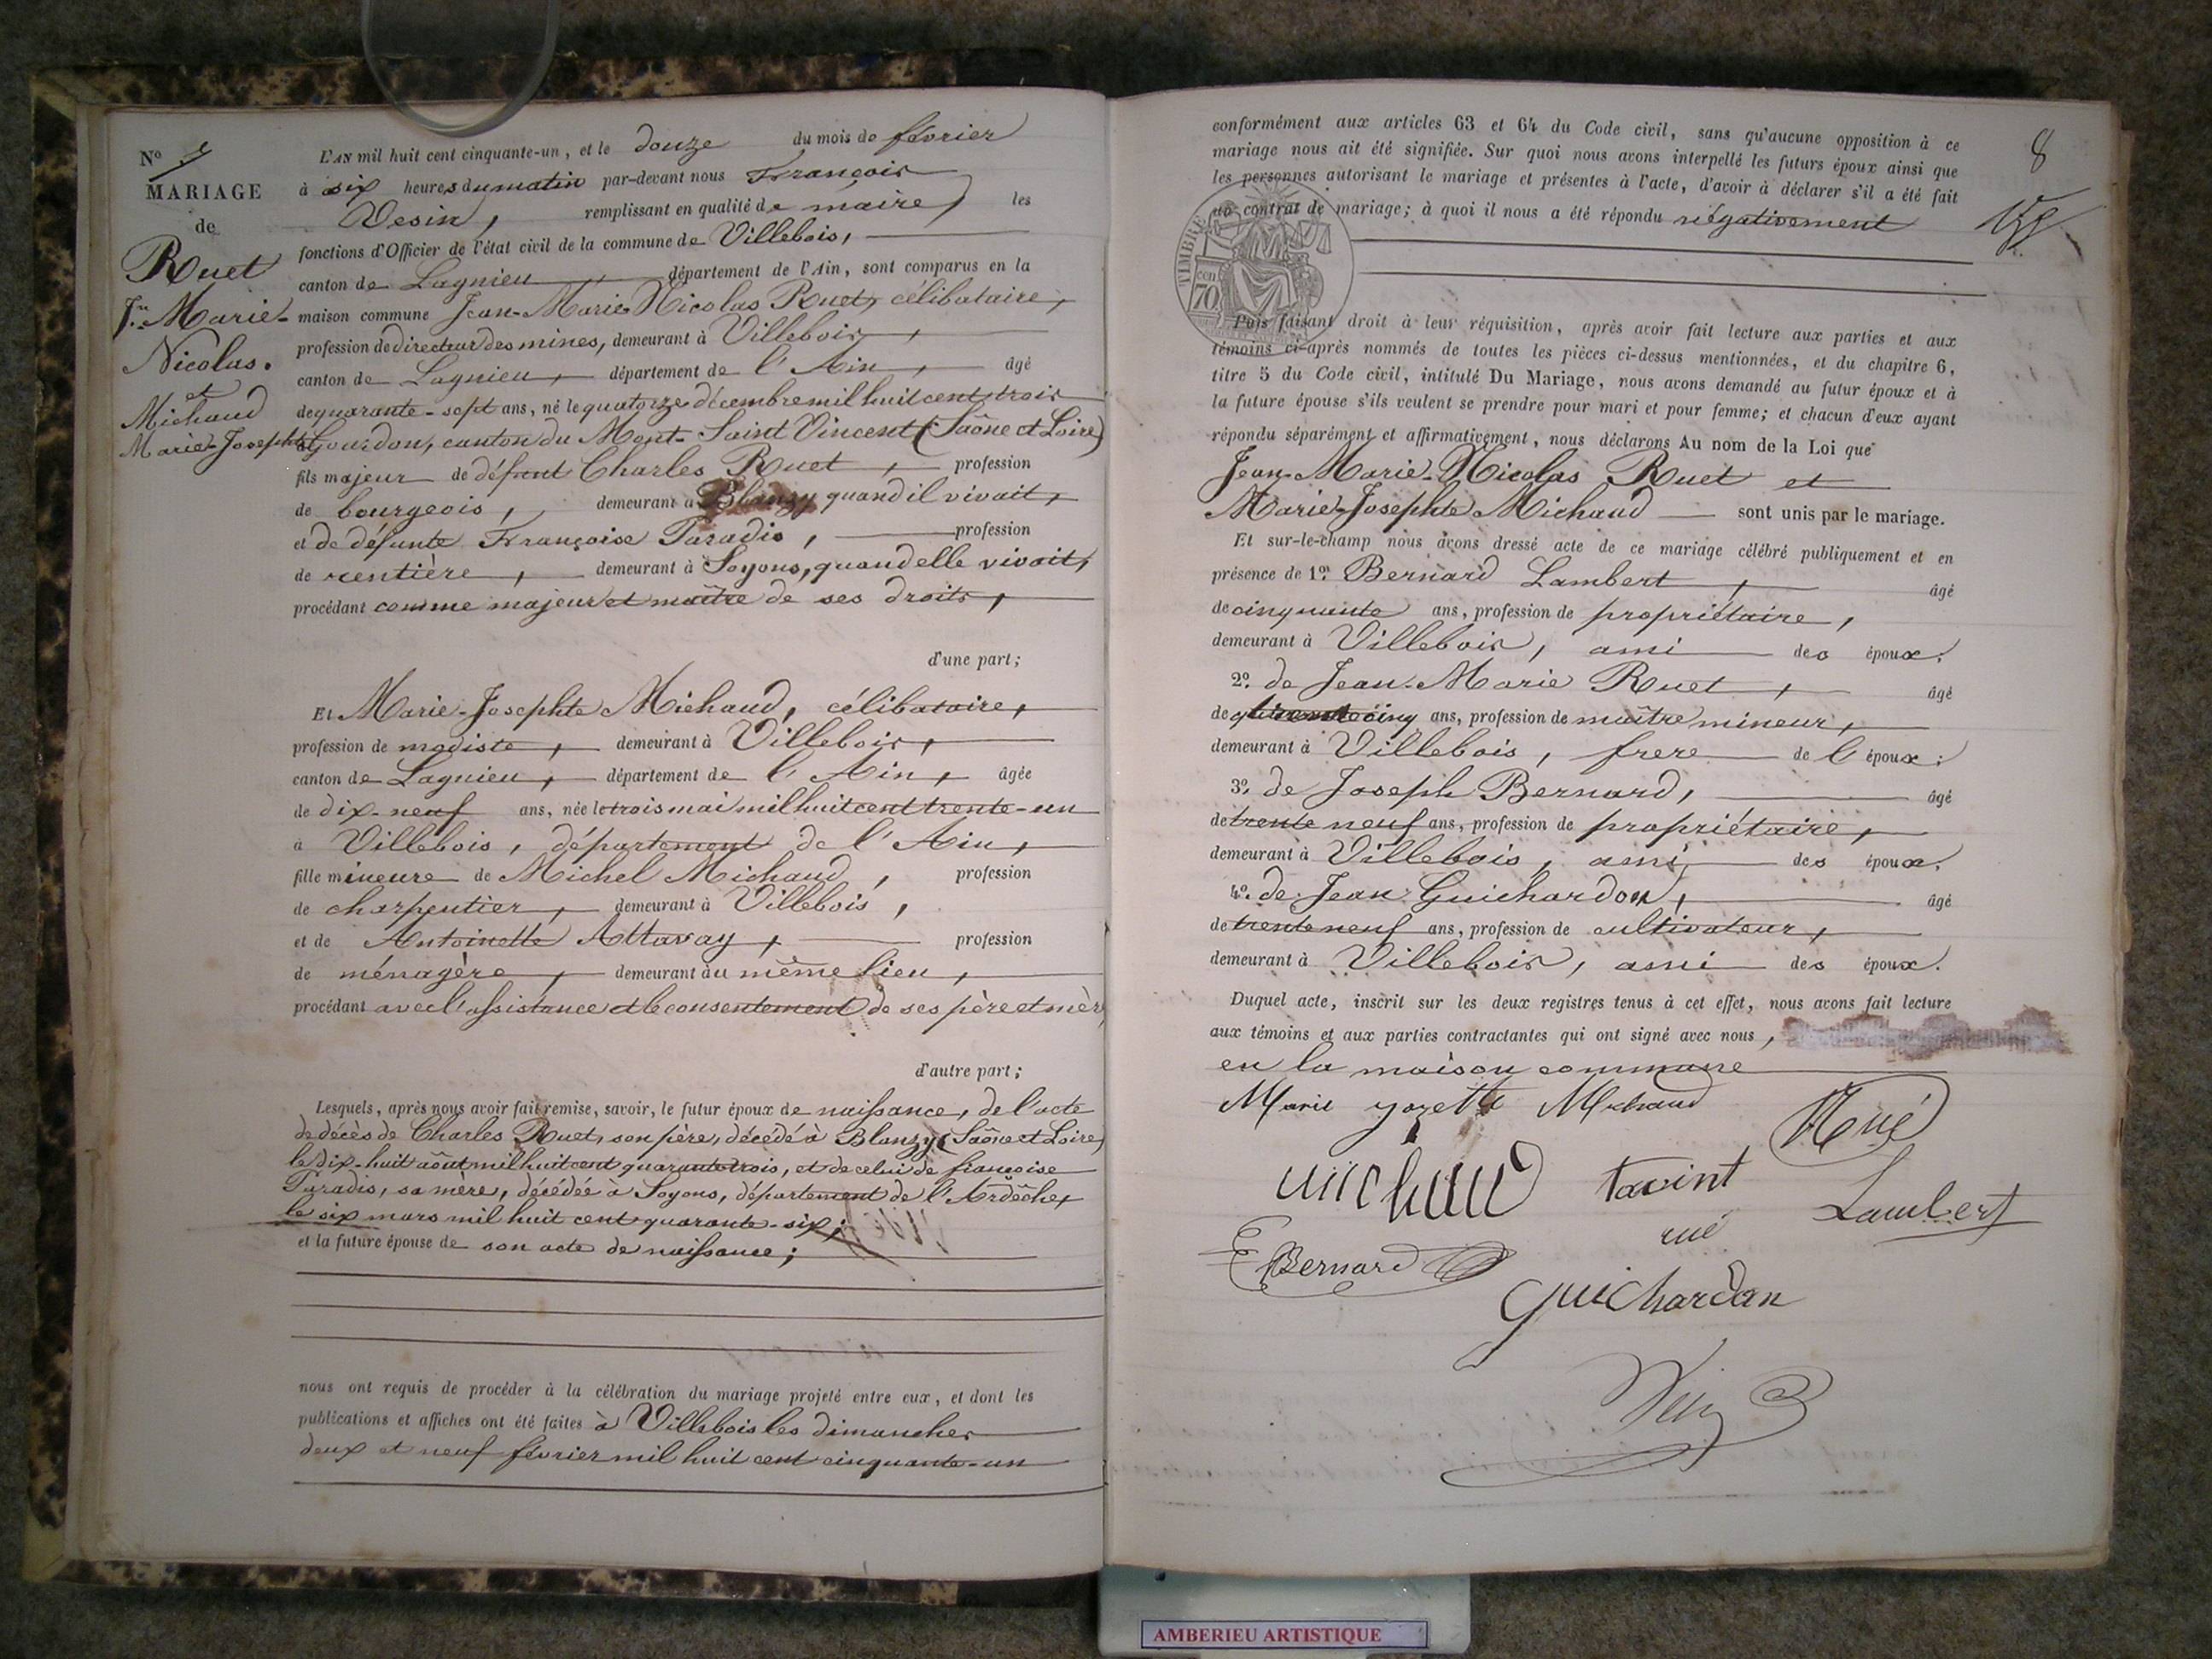 N° 7
MARIAGE
de
Ruet
J.n Marie-
Nicolas.
et
Michaud
Marie-Josephte
L'AN mil huit cent cinquante-un, et le douze du mois de février
à six heures du matin par-devant nous François
Vesin, remplissant en qualité de maire, les
fonctions d'Officier de l'état civil de la commune de Villebois,
canton de Lagnieu, département de l'Ain, sont comparus en la
maison commune Jean-Marie-Nicolas Ruet, célibataire,
profession de directeur des mines, demeurant à Villebois,
canton de Lagnieu, département de l'Ain, âgé
de quarante-sept ans, né le quatorze décembre mil huit cent trois
à Gourdon, canton du Mont-Saint Vincent (Saône et Loire)
fils majeur de défunt Charles Ruet, profession
de bourgeois, demeurant à Blanzy quand il vivait,
et de défunte Françoise Paradis, profession
de rentière, demeurant à Soyons, quand elle vivait,
procédant comme majeur et maître de ses droits,
d'une part;
Et Marie-Josephte Michaud, célibataire,
profession de modiste, demeurant à Villebois,
canton de Lagnieu, département de l'Ain, âgée
de dix-neuf ans, née le trois mai mil huit cent trente-un
à Villebois, département de l'Ain,
fille mineure de Michel Michaud, profession
de charpentier, demeurant à Villebois,
et de Antoinette Attavay, profession
de ménagère, demeurant au même lieu,
procédant avec l'assistance et le consentement de ses père et mère
d'autre part;
Lesquels, après nous avoir fait remise, savoir, le futur époux de naissance, de l'acte
de décès de Charles Ruet, son père, décédé à Blanzy (Saône et Loire)
le dix-huit août mil huit cent quarante trois, et de celui de françoise
Paradis, sa mère, décédée à Soyons, département de l'Ardêche,
le six mars mil huit cent quarante-six;
et la future épouse de son acte de naissance;
nous ont requis de procéder à la célébration du mariage projeté entre eux, et dont les
publications et affiches ont été faites à Villebois les dimanches
deux et neuf février mil huit cent cinquante-un
8
conformément aux articles 63 et 64 du Code civil, sans qu'aucune opposition à ce
mariage nous ait été signifiée. Sur quoi nous avons interpellé les futurs époux ainsi que
les personnes autorisant le mariage et présentes à l'acte, d'avoir à déclarer s'il a été fait
un contrat de mariage; à quoi il nous a été répondu négativement
TIMBRE
cen
70
Puis faisant droit à leur réquisition, après avoir fait lecture aux parties et aux
témoins ci-après nommés de toutes les pièces ci-dessus mentionnées, et du chapitre 6,
titre 5 du Code civil, intitulé Du Mariage, nous avons demandé au futur époux et à
la future épouse s'ils veulent se prendre pour mari et pour femme; et chacun d'eux ayant
répondu séparément et affirmativement, nous déclarons Au nom de la Loi que
Jean-Marie-Nicolas Ruet et
Marie-Josephte Michaud sont unis par le mariage.
Et sur-le-champ nous avons dressé acte de ce mariage célébré publiquement et en
présence de 1°. Bernard Lambert, âgé
de cinquante ans, profession de propriétaire,
demeurant à Villebois, ami des époux.
2°. de Jean-Marie Ruet, âgé
de cinq ans, profession de maître mineur,
demeurant à Villebois, frere de l'époux;
3°. de Joseph Bernard, âgé
de trente neuf ans, profession de propriétaire,
demeurant à Villebois, ami des époux.
4°. de Jean Guichardon, âgé
de trente neuf ans, profession de cultivateur,
demeurant à Villebois, ami des époux.
Duquel acte, inscrit sur les deux registres tenus à cet effet, nous avons fait lecture
aux témoins et aux parties contractantes qui ont signé avec nous,
en la maison commune
Marie yozette Michaud
Rué
michaud tavint
Lambert
rué
Bernard
guichardon
AMBERIEU ARTISTIQUE